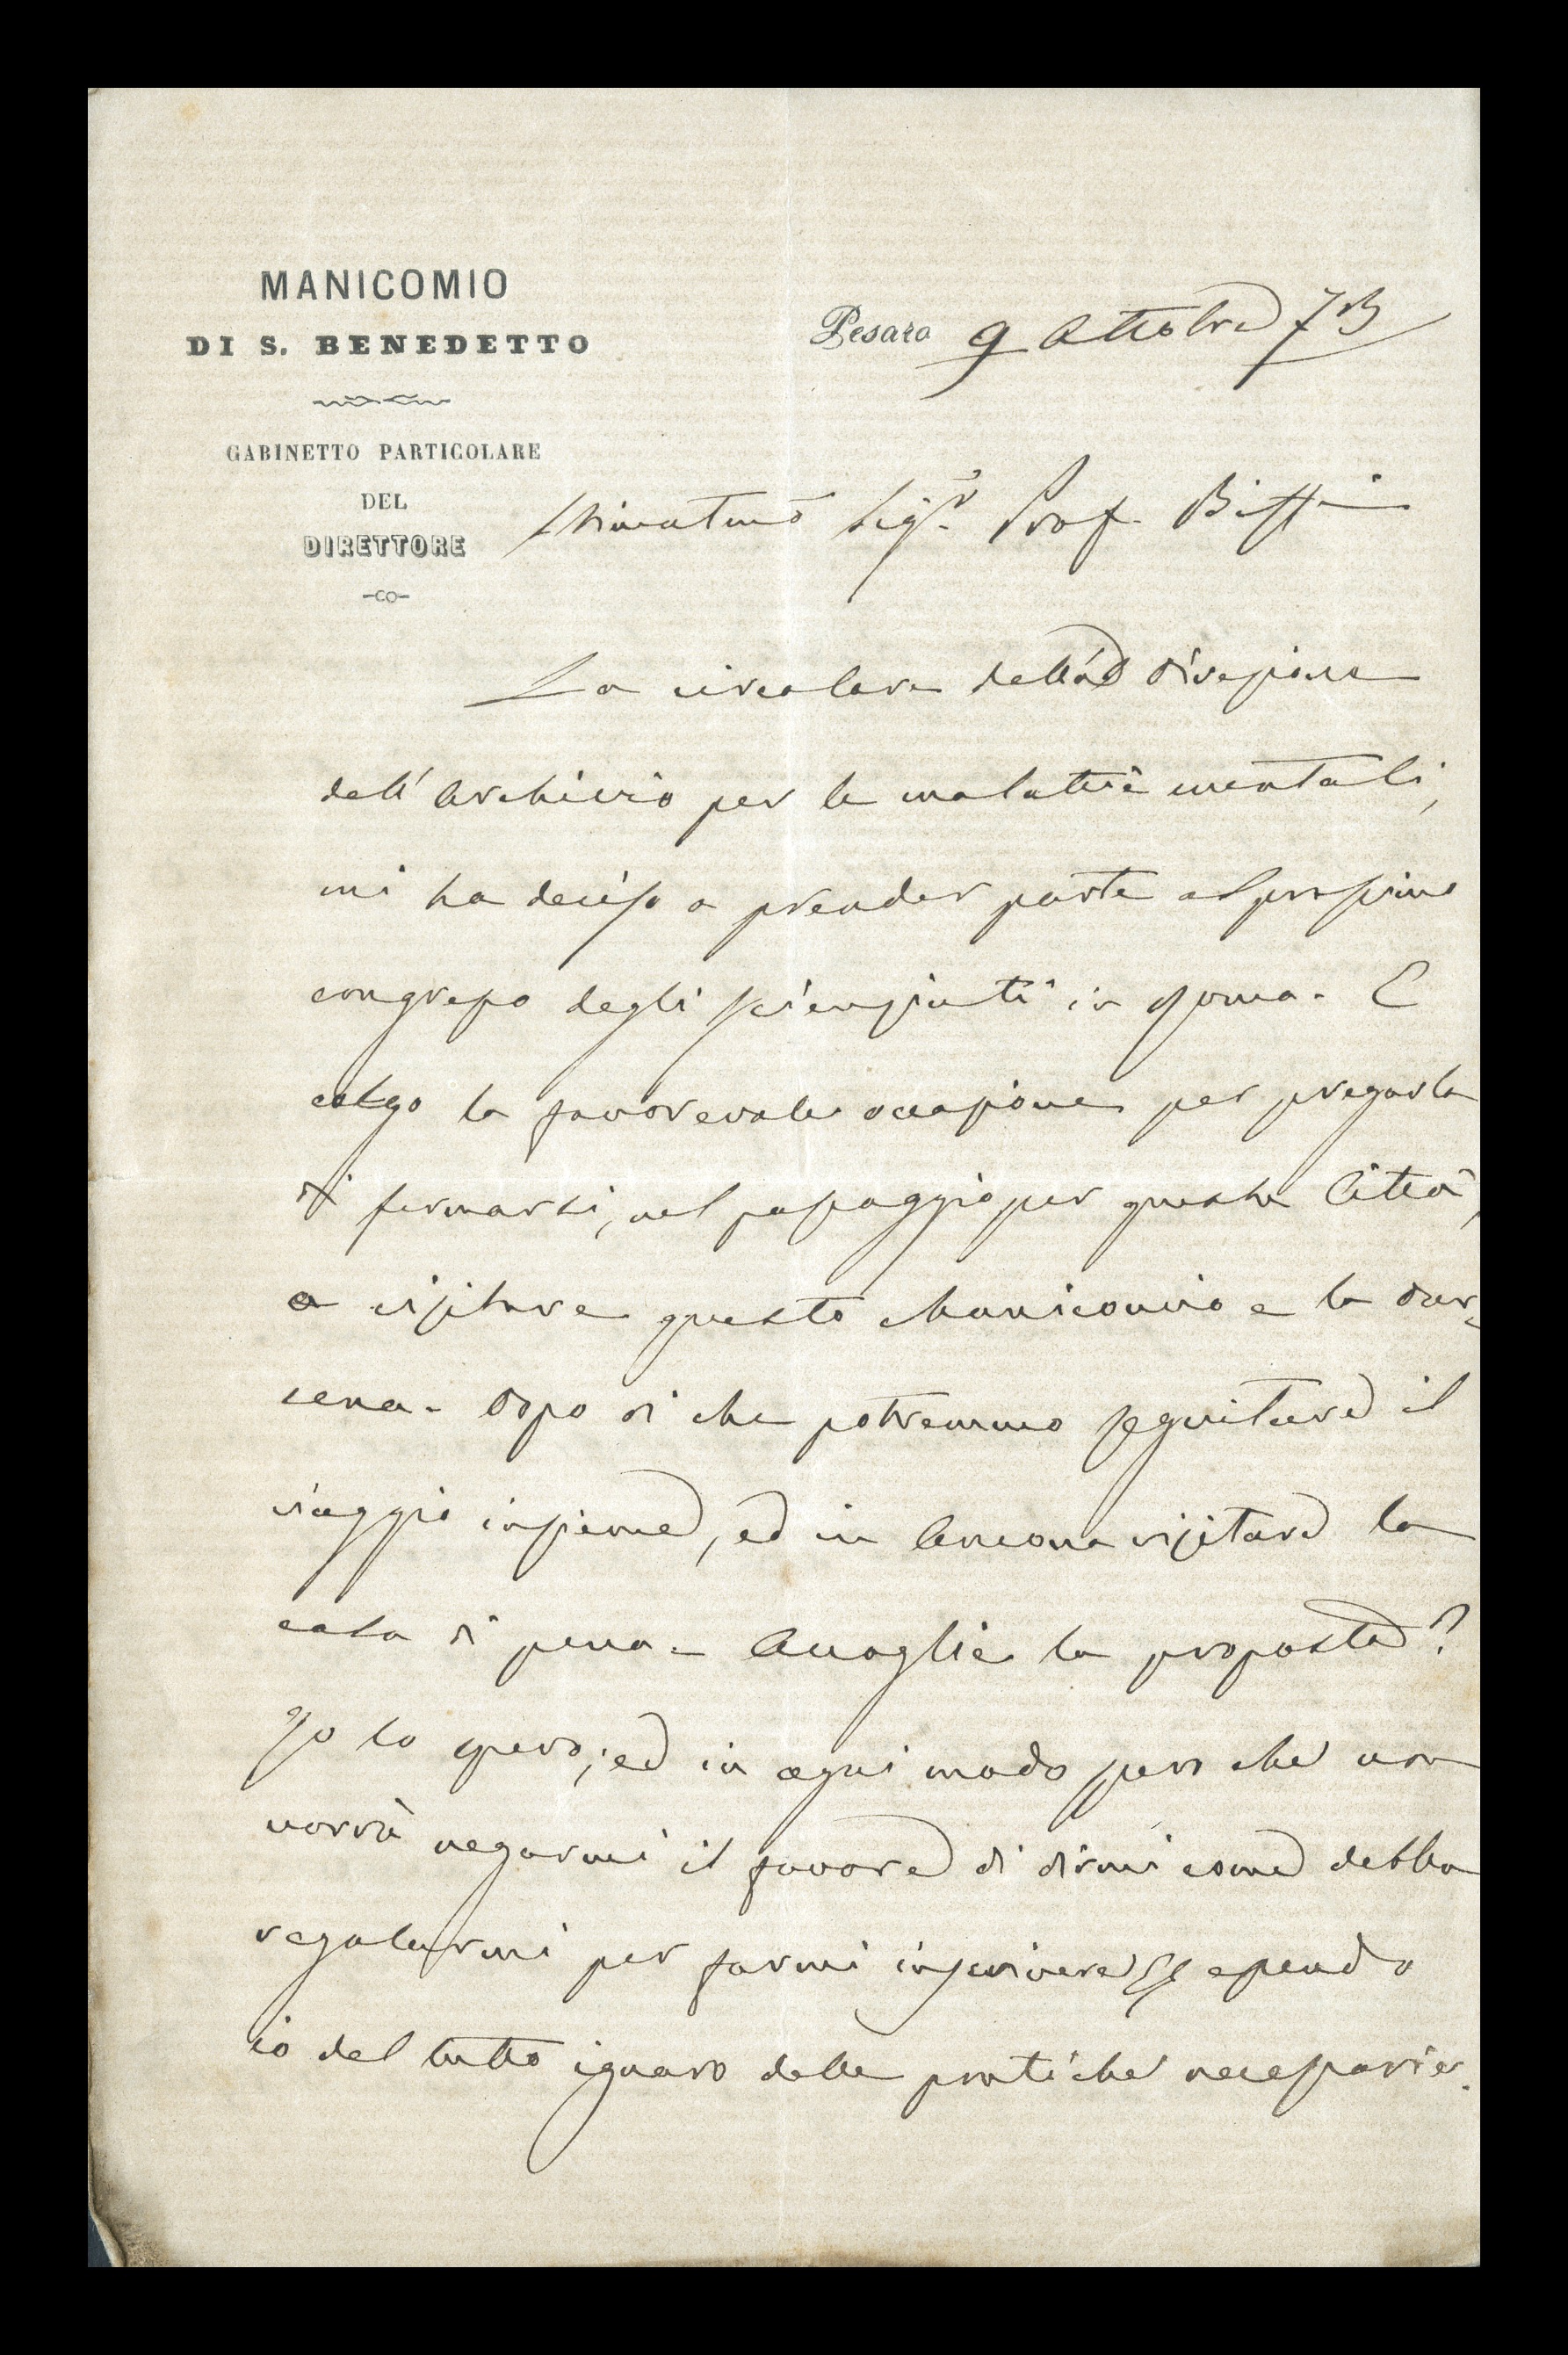 MANICOMIO
DI S. BENEDETTO
GABINETTO PARTICOLARE
DEL
DIRETTORE
Pesaro 9 Ottobre 73
Stimatmo Sigr. Prof. Biffi
La circolare della Direzione
dell'Archivio per le malattie mentali,
mi ha deciso a prender parte al prossimo
congresso degli scienziati in Roma. E
colgo la favorevole occasione per pregarla
di fermarsi, nel passaggio per questa Città,
a visitare questo Manicomio e la dar-
sena. Dopo di che potremmo seguitare il
viaggio insieme, ed in Ancona visitare la
casa di pena. Accoglie la proposta?
Io lo spero; ed in ogni modo spero che non
vorrà negarmi il favore di dirmi come debba
regolarmi per farmi inscrivere essendo
io del tutto ignaro delle pratiche necessarie.